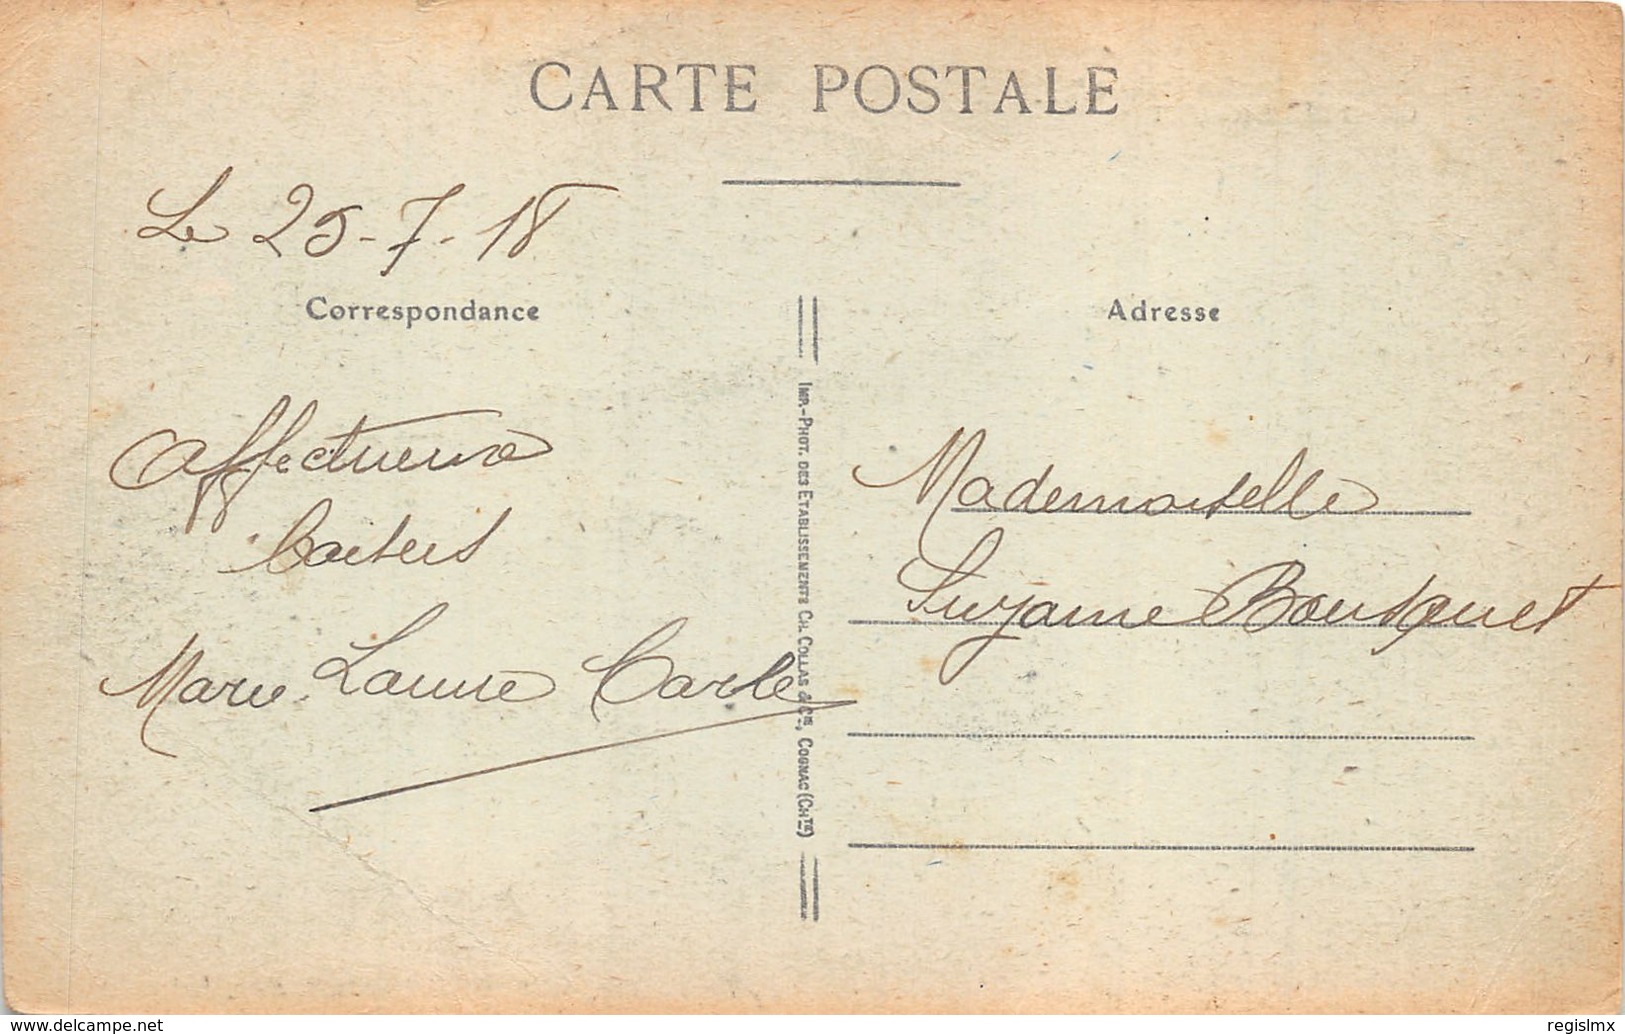 CARTE POSTALE
Le 25-7-18
Correspondance
Adresse
Affectueux
baisers
Marie Laure Carle
IMP.-PHOT. DES ETABLISSEMENTS CH. COLLAS & Cie, COGNAC (CHTE)
Mademoiselle
Suzanne Bousquet
www.delcampe.net
regislmx